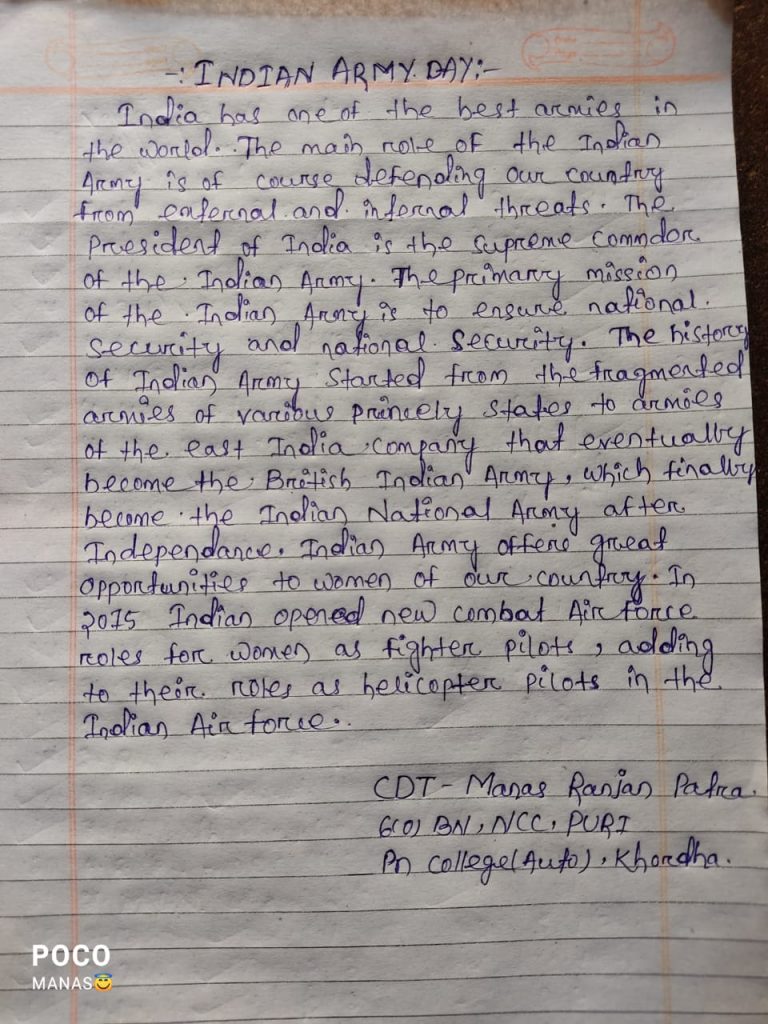 -: INDIAN ARMY DAY:-
India has one of the best armies in
the world. The main role of the Indian
Army is of course defending our country
from enfernal and infernal threats. The
President of India is the supreme commdor
of the Indian Army. The primary mission
of the Indian Army is to ensure national
security and national security. The history
of Indian Army started from the fragmented
armies of various princely states to armies
of the east India company that eventually
become the British Indian Army, which finally
become the Indian National Army after
Independance. Indian Army offers great
opportunities to women of our country. In
2015 Indian opened new combat Air force
roles for women as fighter pilots, adding
to their roles as helicopter pilots in the
Indian Air force..
CDT- Manas Ranjan Patra.
6(O) BN, NCC, PURI
Pn College(Auto), Khordha.
POCO
MANAS😇